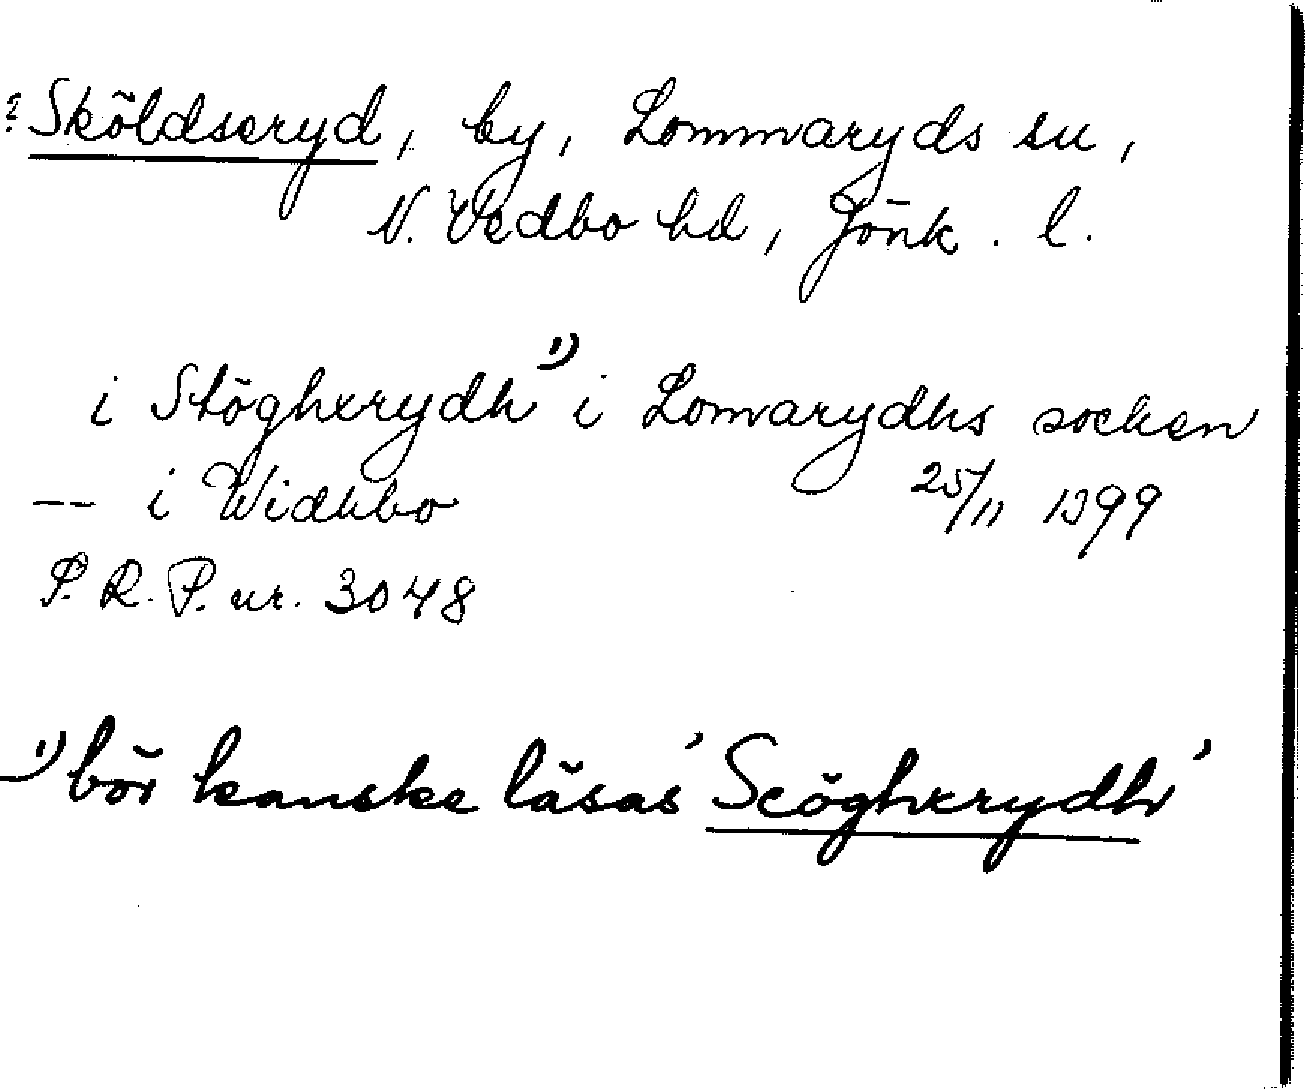 ? Sköldseryd, by, Lommaryds sn,
N. Vedbo hd, Jönk. l.
i Stögherydh ¹⁾ i Lomarydhs socken
-- i Widhbo 25/11 1399
P. R. P. nr. 3048
¹⁾ bör kanske läsas 'Scögherydh'